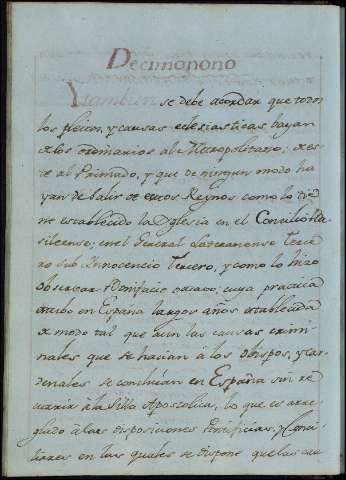 Decimonono
Ytambien se debe acordar que todos
los pleitos, y causas eclesiasticas hayan
de los ordinarios al Metropolitano; de es-
te al Primado, y que de ningun modo ha
yan de salir de estos Reynos como lo tie
ne establecido la Yglesia en el Concilio Ba-
sileense; en el General Lateranense Terce
ro sub Innocencio Tercero, y como lo hizo
observar Bonifacio octavo; cuya practica
estubo en España largos años establecida
de modo tal que aun las causas crimi-
nales que se hacian à los obispos, y car-
denales se concluían en España sin re
currir à la Silla Apostolica, lo que es arre-
glado à las disposiciones Pontificias, y Conci-
liares en las quales se dispone que las cau